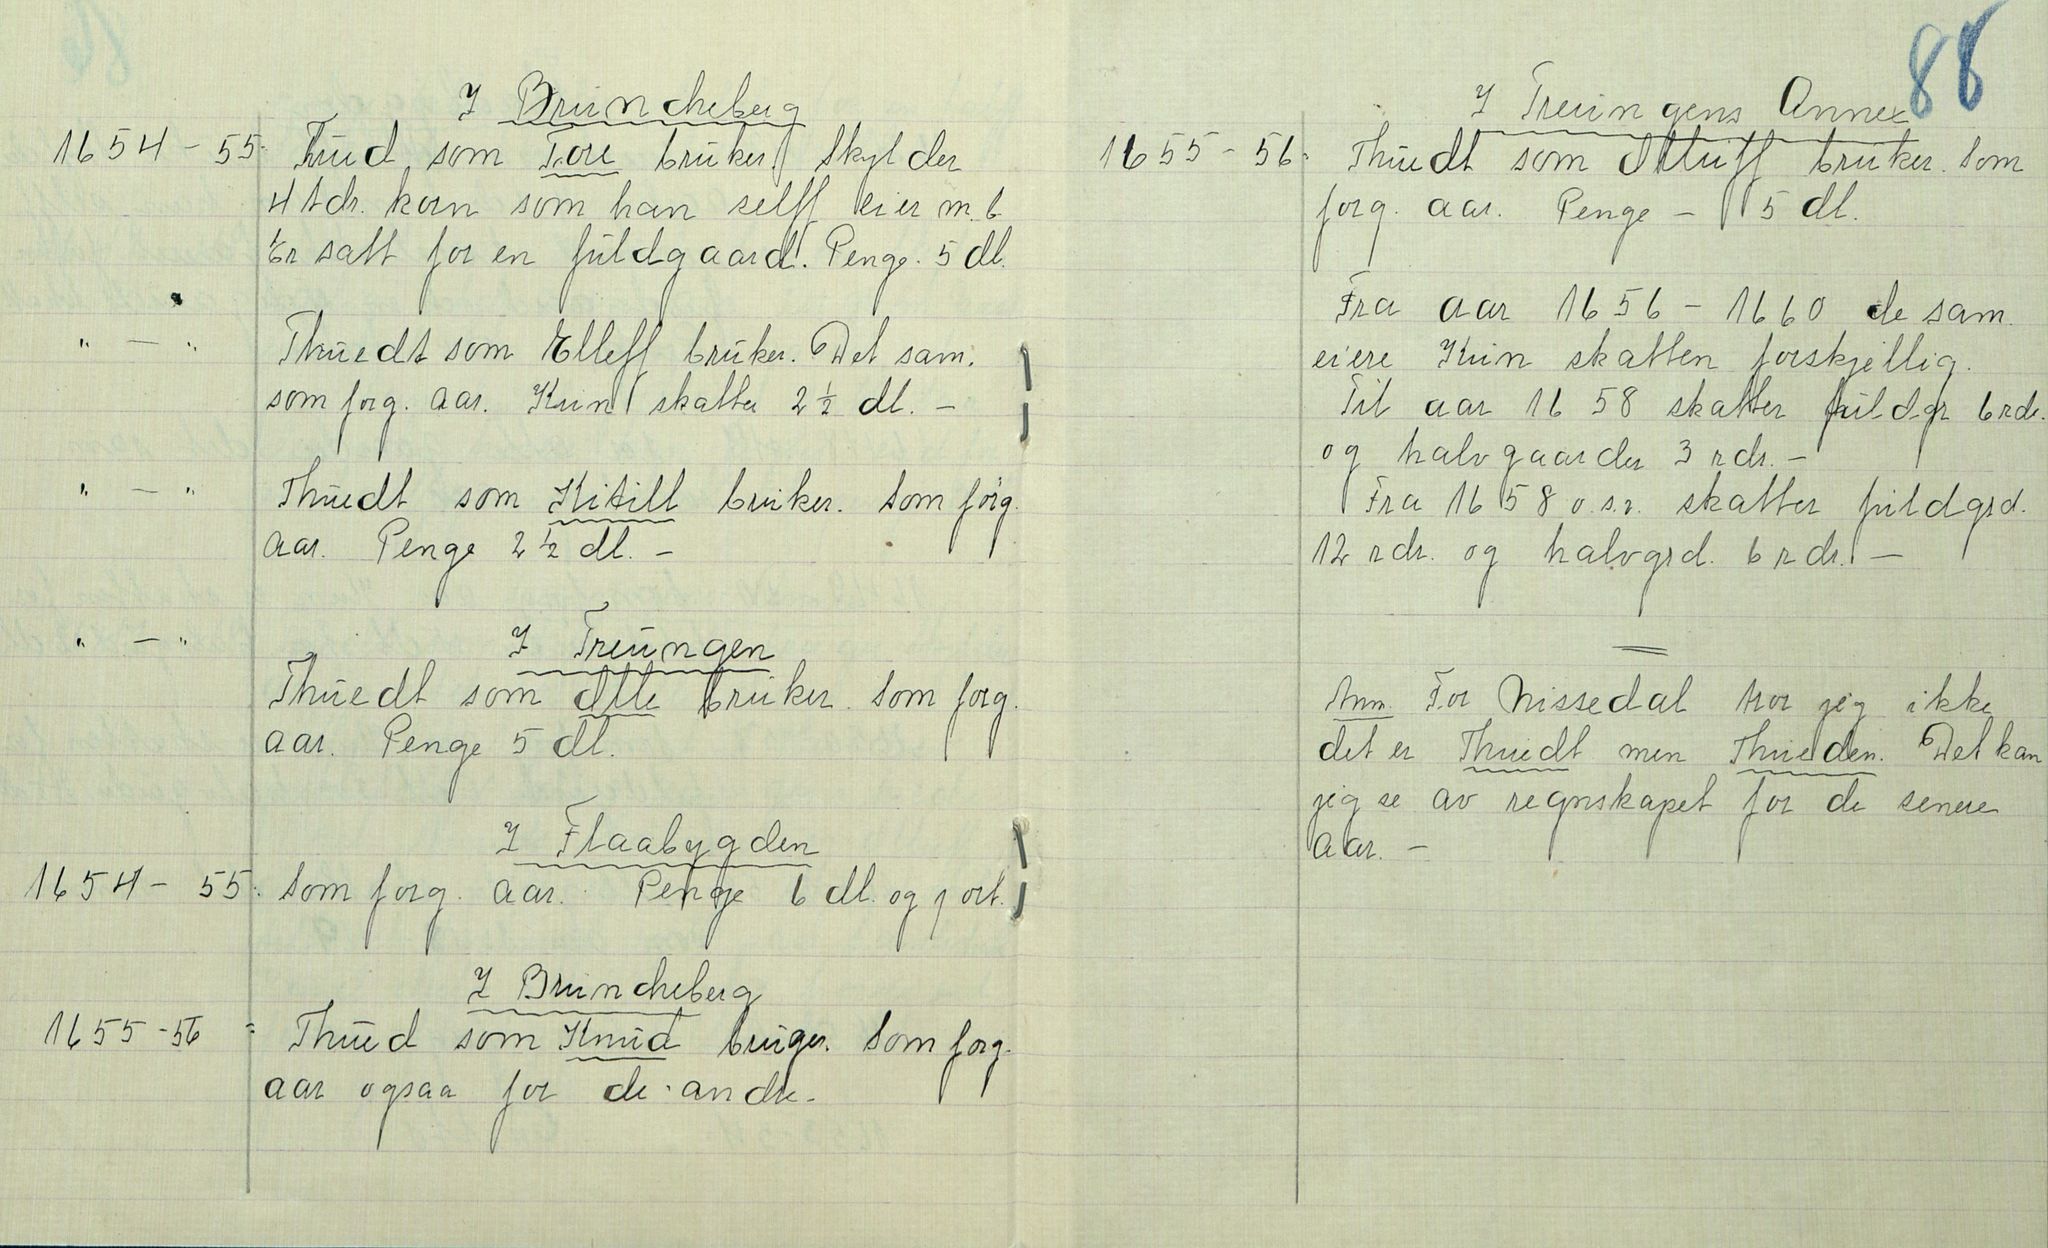 I Bruncheberg
1654 - 55. Thud som Tore bruker, skylder
4 tdr. korn som han selff eier m. b
Er satt for en fuldgaard. Penge. 5 dl.
" — " Thuedt som Elleff bruker. Det sam.
som forg. aar. Kun skatter 2 ½ dl. -
" — " Thuedt som Kitill bruker. Som forg.
aar. Penge 2 ½ dl. -
" — " I Treungen
Thuedt som Atle bruker. Som forg.
aar. Penge 5 dl.
I Flaabygden
1654 - 55. Som forg. aar. Penge 6 dl. og 1 ort.
I Bruncheberg
1655 - 56 = Thued som Knud bruger. Som forg.
aar ogsaa for de andre.
88
I Treungens Annex
1655 - 56. Thuedt som bruker. Som
forg. aar. Penge - 5 dl.
Fra aar 1656 - 1660 de sam.
eiere Kun skatten forskjellig.
Til aar 1658 skatter fuldgr 6 rdr.
og halvgaarder 3 rdr. -
Fra 1658 o.s.v. skatter fuldgrd.
12 rdr. og halvgrd. 6 rdr. -
Anm. For Nissedal tror jeg ikke
det er Thuedt men Thueden. Det kan
jeg se av regnskapet for de senere
aar. -